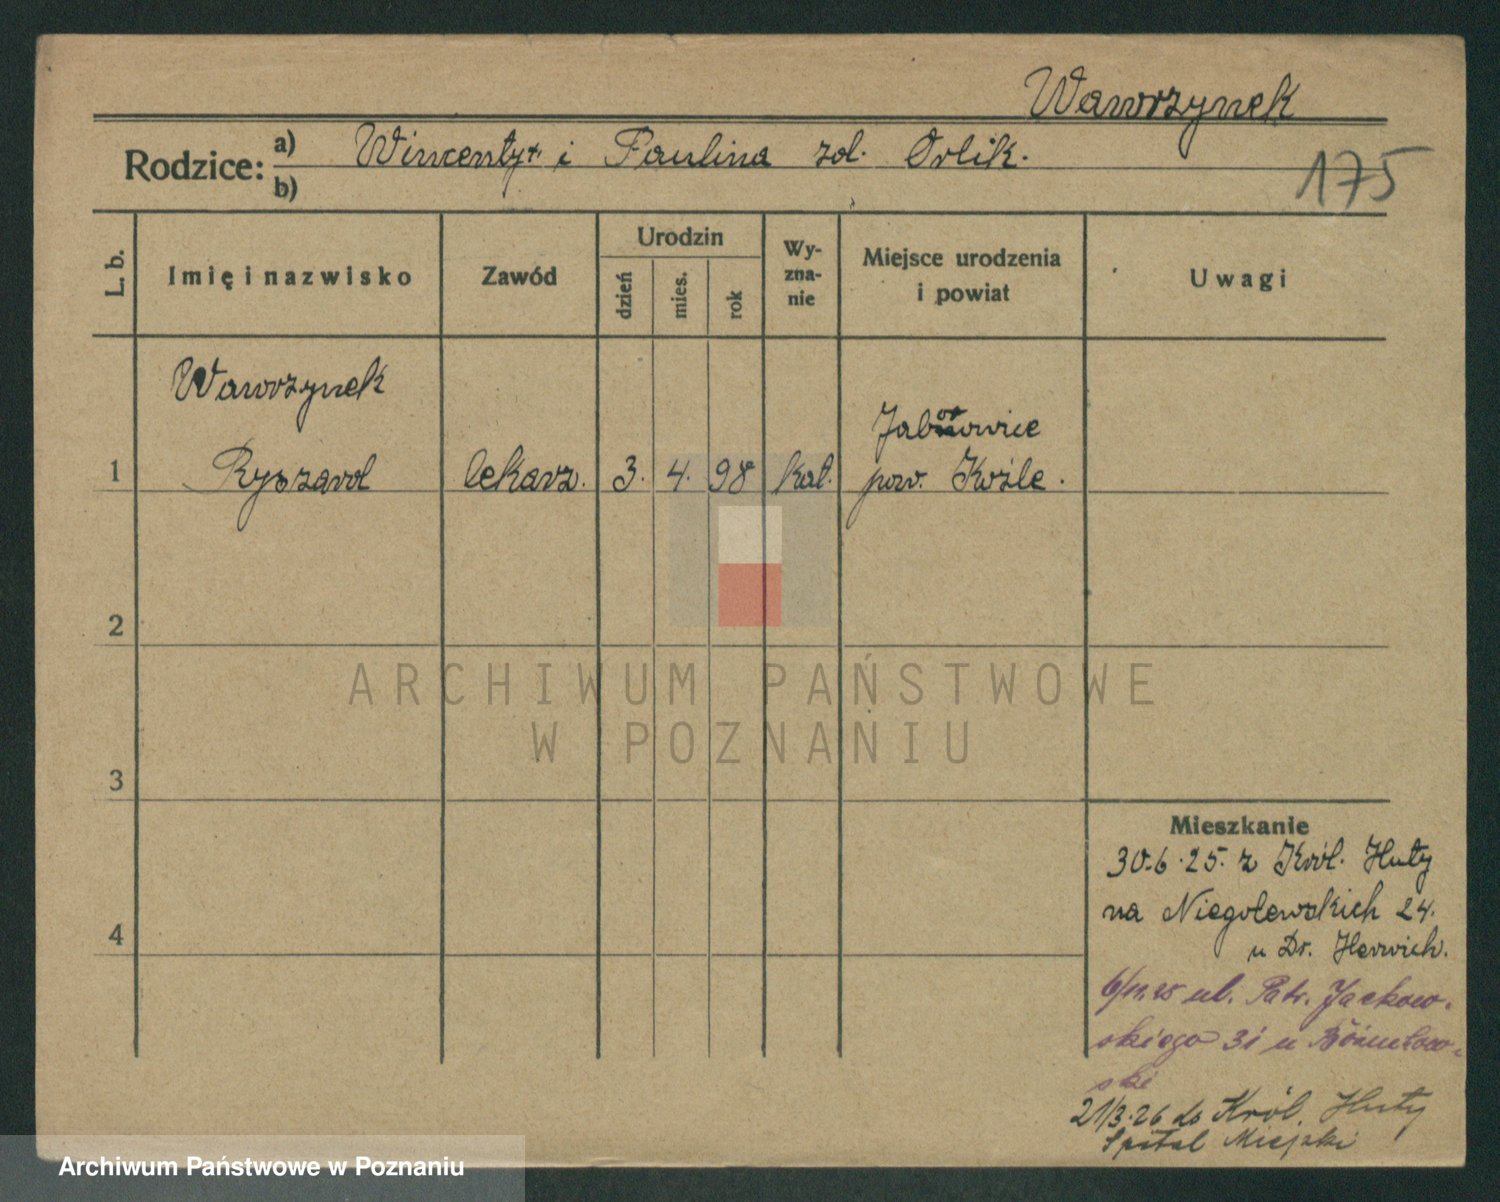 Wawrzynek
Rodzice: a) Wincenty + i Paulina zd. Orlik.
b)
175
L. b.
Imię i nazwisko
Zawód
Urodzin
dzień
mies.
rok
Wy-
zna-
nie
Miejsce urodzenia
i powiat
Uwagi
Wawrzynek
1 Ryszard lekarz. 3. 4. 98 kat.
pow. Koźle.
2
3
4
Mieszkanie
30.6.25. z Król. Huty
na Niegolewskich 24.
u Dr.
6/11.25 ul. Patr. Jackow-
skiego 31 u
ski
21/3.26 do Król. Huty
Szpital Miejski
ARCHIWUM PAŃSTWOWE
W POZNANIU
Archiwum Państwowe w Poznaniu